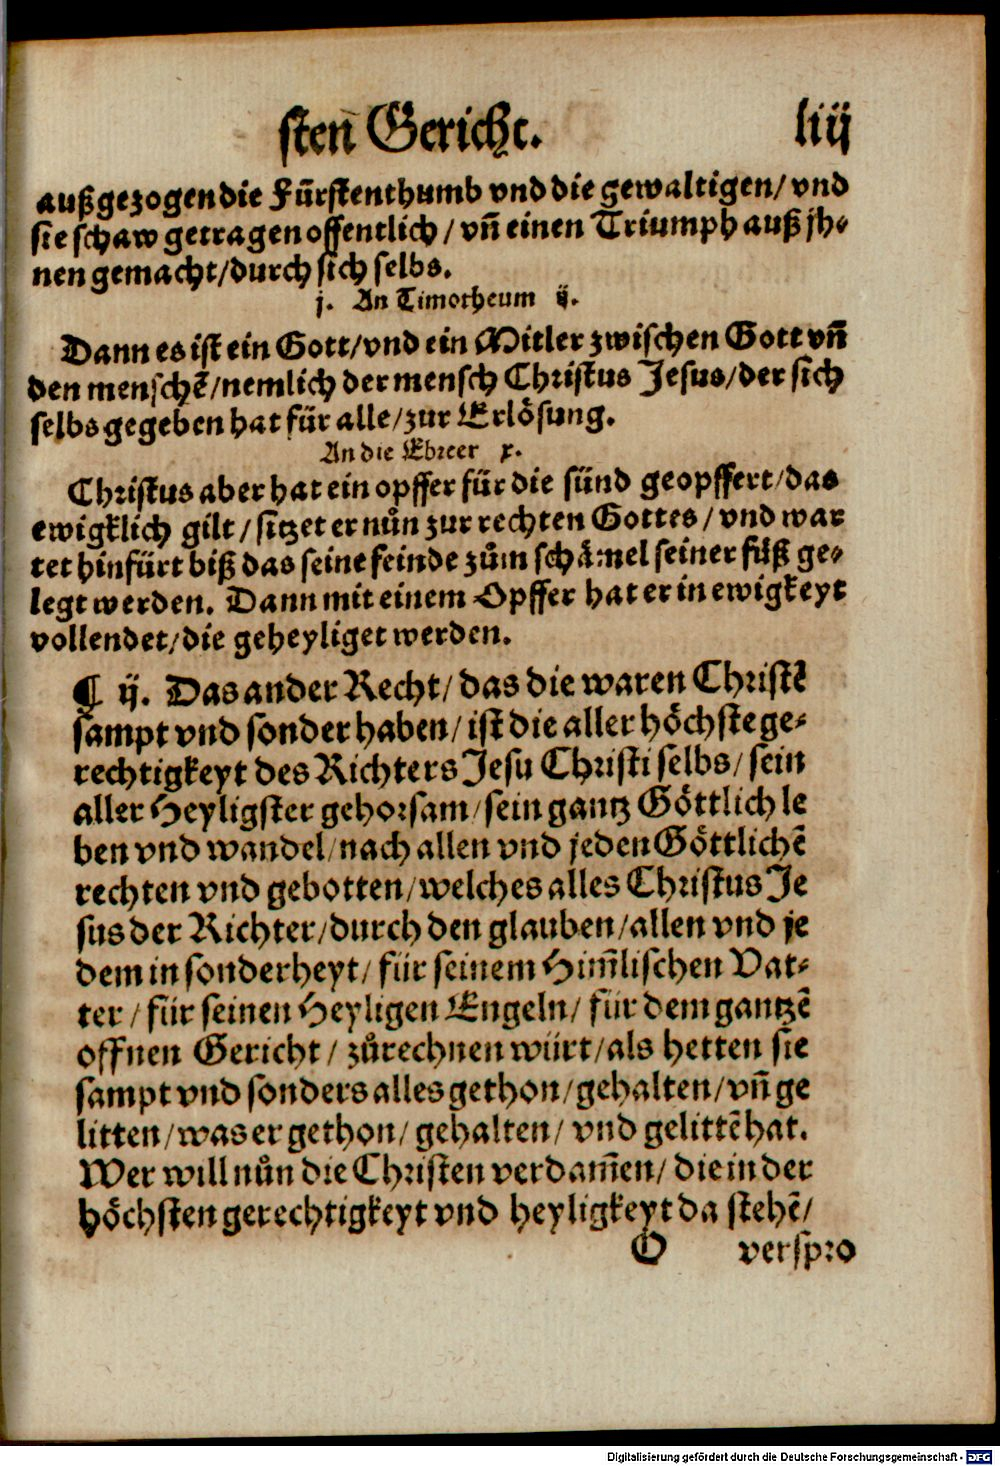 sten Gericht. liij
außgezogen die Fürstenthumb vnd die gewaltigen/ vnd
sie schaw getragen offentlich / vn̄ einen Triumph auß jh-
nen gemacht/durch sich selbs.
j. An Timotheum ij.
Dann es ist ein Gott/vnd ein Mitler zwischen Gott vn̄
den menschē/nemlich der mensch Christus Jesus/der sich
selbs gegeben hat für alle/zur Erlösung.
An die Ebreer x.
Christus aber hat ein opffer für die sünd geopffert/das
ewigklich gilt / sitzet er nůn zur rechten Gottes / vnd war
tet hinfürt biß das seine feinde zům schämel seiner füß ge-
legt werden. Dann mit einem Opffer hat er in ewigkeyt
vollendet/die geheyliget werden.
¶ ij. Das ander Recht/ das die waren Christē
sampt vnd sonder haben/ ist die aller höchste ge-
rechtigkeyt des Richters Jesu Christi selbs/ sein
aller Heyligster gehorsam/sein gantz Göttlich le
ben vnd wandel/nach allen vnd jeden Göttlichē
rechten vnd gebotten/welches alles Christus Je
sus der Richter/durch den glauben/allen vnd je
dem in sonderheyt/ für seinem Him̄lischen Vat-
ter / für seinen Heyligen Engeln/ für dem gantzē
offnen Gericht / zůrechnen würt/als hetten sie
sampt vnd sonders alles gethon/gehalten/vn̄ ge
litten/was er gethon/ gehalten/ vnd gelittē hat.
Wer will nůn die Christen verdam̄en/ die in der
höchsten gerechtigkeyt vnd heyligkeyt da stehē/
O verspro
Digitalisierung gefördert durch die Deutsche Forschungsgemeinschaft - DFG